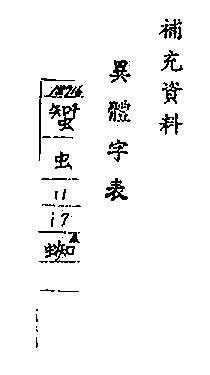 補充資料
異體字表
虫
11
17
蜘